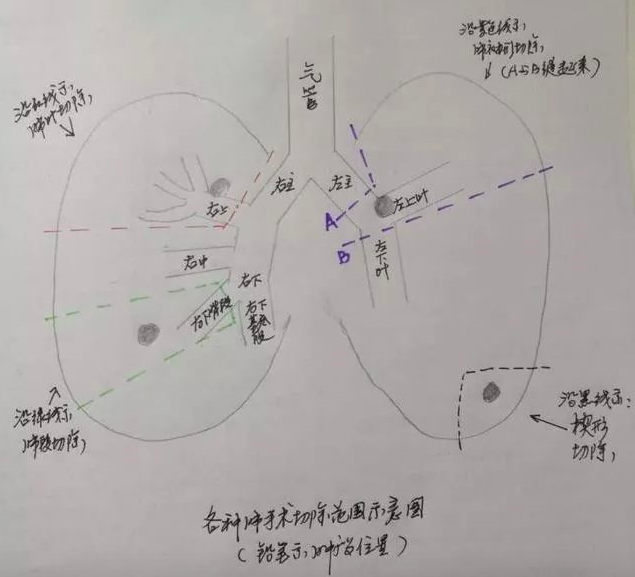 沿红线示,
肺叶切除,
沿蓝色线示,
肺袖切除,
(A与B缝起来)
气管
右主
左主
右上
左上叶
A
B
右中
右下
左下叶
右下背段
右下基底段
沿绿线示,
肺段切除,
沿黑线示:
楔形
切除,
各种肺手术切除范围示意图
(铅笔示,肿瘤位置)